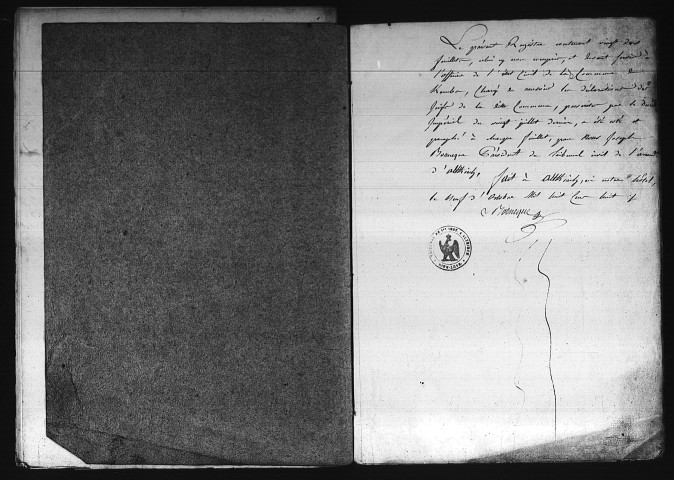 Le présent Registre contenant vingt deux
feuillets, celui cy non compris, et devant servir à
l'officier de l'état Civil de la Commune de
Kembs, Chargé de recevoir les déclarations des
Juifs de la dite Commune, prescrites par le decret
Impérial du vingt juillet dernier, a été coté et
paraphé à chaque feuillet, par Nous Joseph
Président du Tribunal civil de l'arrond.
d'altkirch, fait à altkirch, en notre hôtel,
le Neuf d'Octobre Mil huit Cent huit